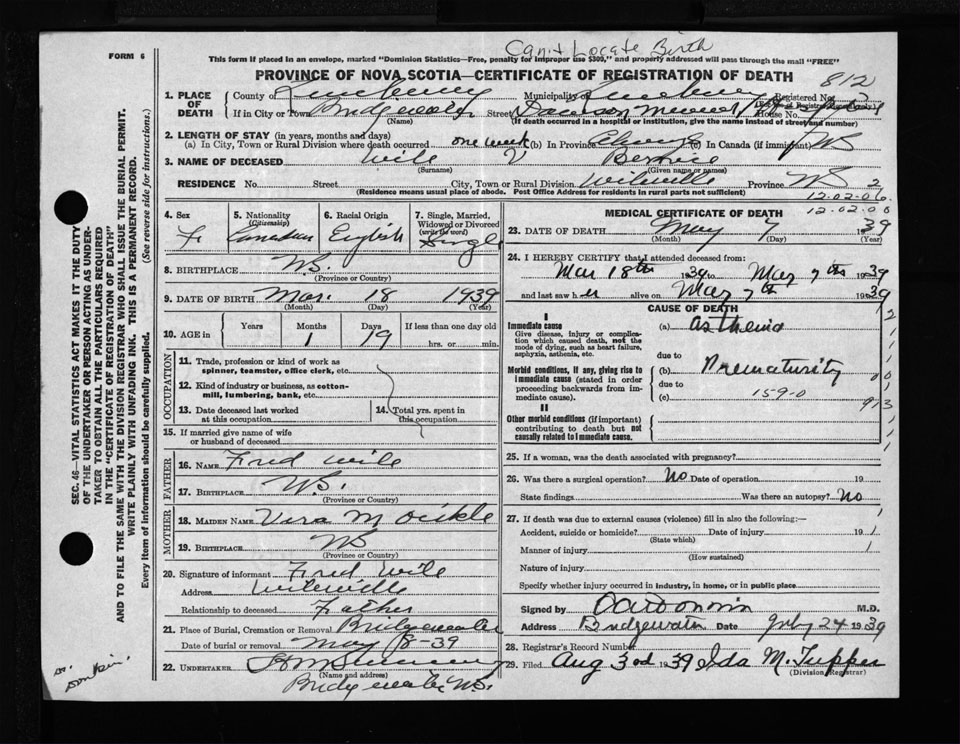 Can't Locate Birth
FORM 6
This form if placed in an envelope, marked "Dominion Statistics—Free, penalty for improper use $300," and properly addressed will pass through the mail "FREE"
PROVINCE OF NOVA SCOTIA—CERTIFICATE OF REGISTRATION OF DEATH
812
1. PLACE OF DEATH County of Lunenburg Municipality of Lunenburg Registered No.
If in City or Town Bridgewater Street Dawson Memorial House No.
(Name) (If death occurred in a hospital or institution, give the name instead of street and number)
2. LENGTH OF STAY (in years, months and days)
(a) In City, Town or Rural Division where death occurred one week (b) In Province (c) In Canada (if immigrant)
3. NAME OF DECEASED Wile Bernice
(Surname) (Given name or names)
RESIDENCE No. Street City, Town or Rural Division Wileville Province NS 2
(Residence means usual place of abode. Post Office Address for residents in rural parts not sufficient)
12.02.06.
12.02.06
4. Sex F.
5. Nationality (Citizenship) Canadian
6. Racial Origin English
7. Single, Married, Widowed or Divorced (write the word) Single
8. BIRTHPLACE N.S.
(Province or Country)
9. DATE OF BIRTH Mar. 18 1939
(Month) (Day) (Year)
10. AGE in Years Months Days If less than one day old
1 19 hrs. or min.
OCCUPATION
11. Trade, profession or kind of work as spinner, teamster, office clerk, etc.
12. Kind of industry or business, as cotton-mill, lumbering, bank, etc.
13. Date deceased last worked at this occupation
14. Total yrs. spent in this occupation
15. If married give name of wife or husband of deceased
FATHER
16. NAME Fred Wile
17. BIRTHPLACE N.S.
(Province or Country)
MOTHER
18. MAIDEN NAME Vera M Oickle
19. BIRTHPLACE NS
(Province or Country)
20. Signature of informant Fred Wile
Address Wileville
Relationship to deceased Father
21. Place of Burial, Cremation or Removal Bridgewater
Date of burial or removal May 8-39
22. UNDERTAKER
(Name and address)
Bridgewater N.S.
MEDICAL CERTIFICATE OF DEATH
23. DATE OF DEATH May 7 39
(Month) (Day) (Year)
24. I HEREBY CERTIFY that I attended deceased from:
Mar 18th 1939 to May 7th 1939
and last saw her alive on May 7th 1939
CAUSE OF DEATH
I
Immediate cause (a) asthenia
Give disease, injury or complication which caused death, not the mode of dying, such as heart failure, asphyxia, asthenia, etc.
due to
Morbid conditions, if any, giving rise to immediate cause (stated in order proceeding backwards from immediate cause).
(b) Prematurity
due to
(c) 159-0
II
Other morbid conditions (if important) contributing to death but not causally related to immediate cause.
25. If a woman, was the death associated with pregnancy?
26. Was there a surgical operation? No Date of operation 19
State findings Was there an autopsy? No
27. If death was due to external causes (violence) fill in also the following:—
Accident, suicide or homicide? Date of injury 19
(State which)
Manner of injury
(How sustained)
Nature of injury
Specify whether injury occurred in industry, in home, or in public place
Signed by M.D.
Address Bridgewater Date July 24 1939
28. Registrar's Record Number
29. Filed Aug 3rd 1939 Ida M. Tupper
(Division Registrar)
SEC. 46—VITAL STATISTICS ACT MAKES IT THE DUTY OF THE UNDERTAKER OR PERSON ACTING AS UNDERTAKER TO OBTAIN ALL THE PARTICULARS REQUIRED IN THE "CERTIFICATE OF REGISTRATION OF DEATH"
AND TO FILE THE SAME WITH THE DIVISION REGISTRAR WHO SHALL ISSUE THE BURIAL PERMIT.
WRITE PLAINLY WITH UNFADING INK. THIS IS A PERMANENT RECORD.
Every item of information should be carefully supplied. (See reverse side for instructions.)